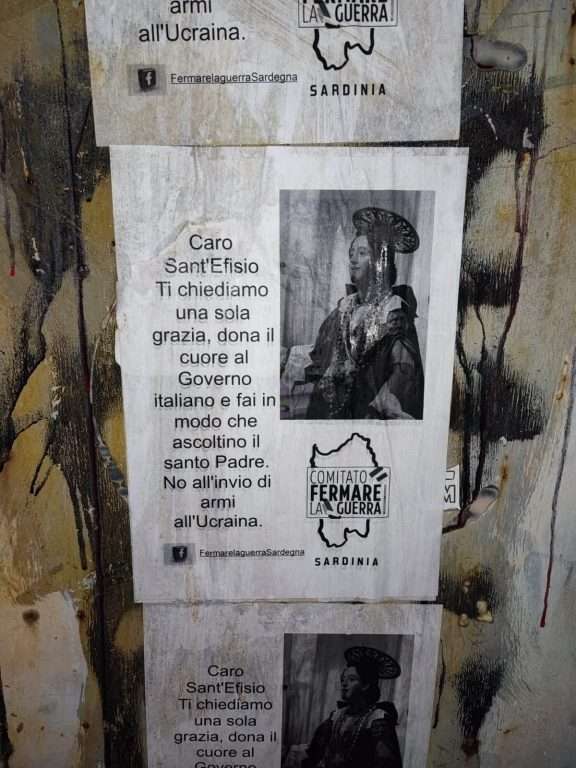 armi
all'Ucraina.
FermarelaguerraSardegna
FERMARE
LA GUERRA
SARDINIA
Caro
Sant'Efisio
Ti chiediamo
una sola
grazia, dona il
cuore al
Governo
italiano e fai in
modo che
ascoltino il
santo Padre.
No all'invio di
armi
all'Ucraina.
FermarelaguerraSardegna
COMITATO
FERMARE
LA GUERRA
SARDINIA
Caro
Sant'Efisio
Ti chiediamo
una sola
grazia, dona il
cuore al
Governo